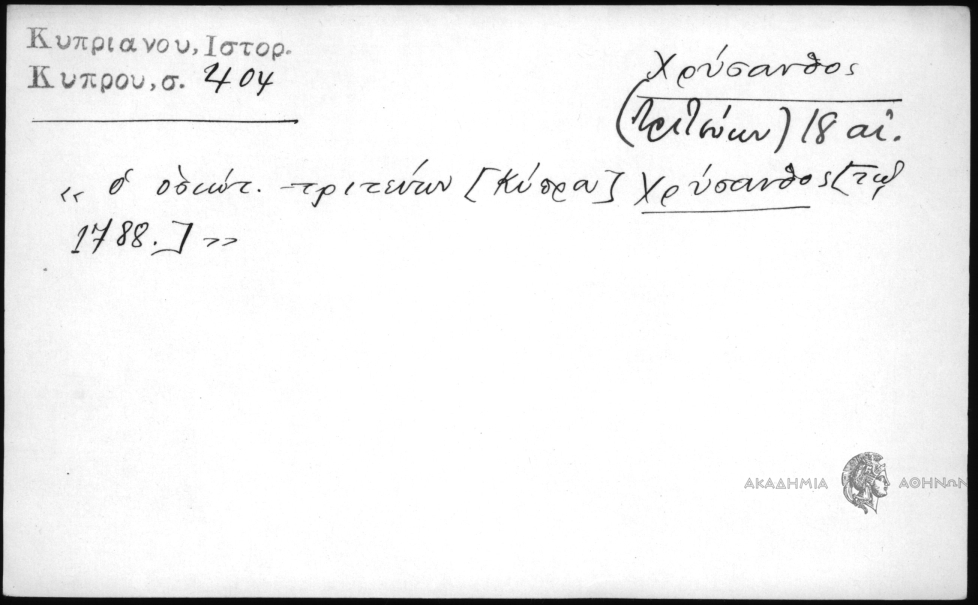 Κυπριανου, Ιστορ.
Κυπρου, σ. 404
Χρύσανθος
(Τριτεύων) 18 αἰ.
« ὁ ὁσιώτ. τριτεύων [Κύπρου] Χρύσανθος [τῷ
1788.] »
ΑΚΑΔΗΜΙΑ ΑΘΗΝΩΝ